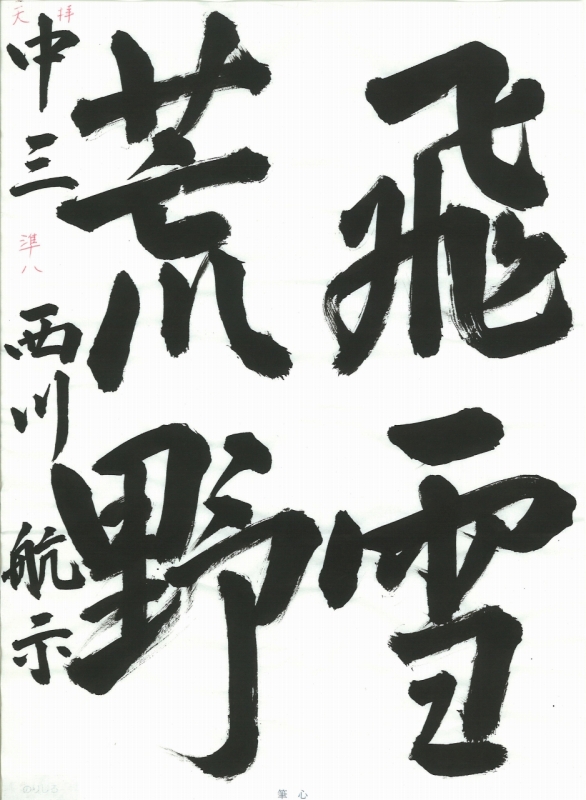 飛雪
荒野
天 拝
中三 準八 西川 航示
筆心